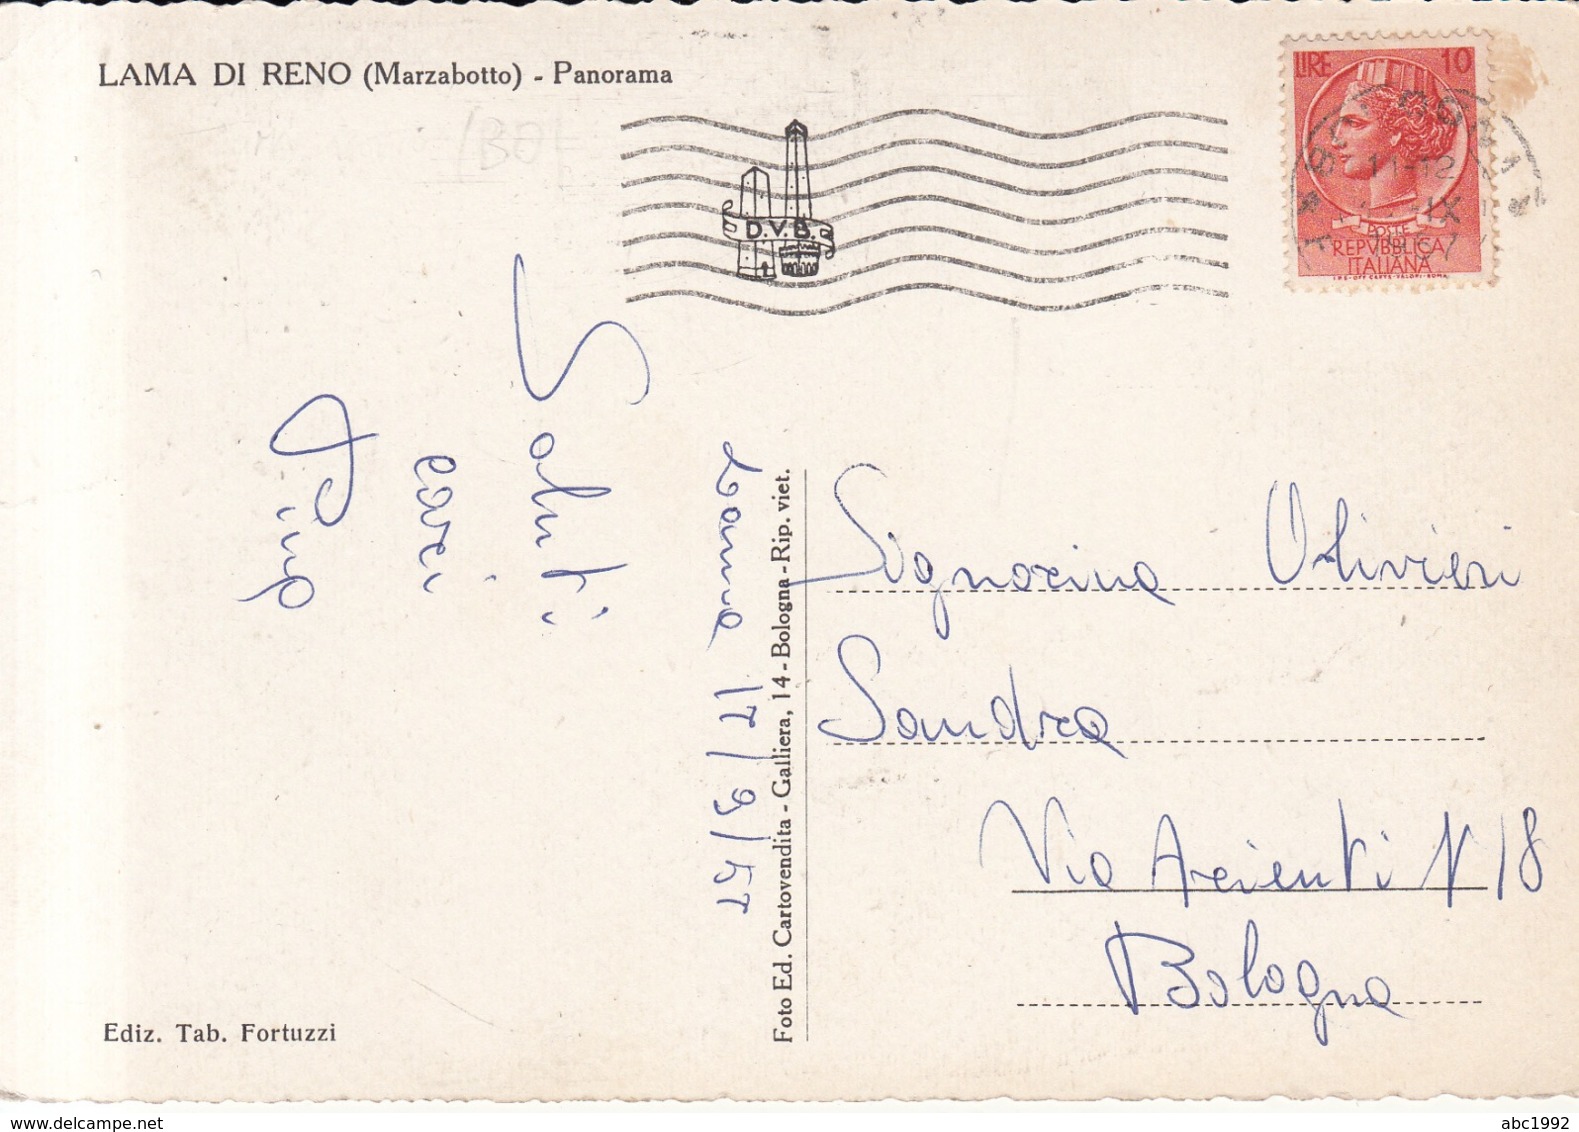 LAMA DI RENO (Marzabotto) - Panorama
(BO)
D.V.B.
LIRE 10
11-12
IX
POSTE
REPVBBLICA
ITALIANA
I.P.S.-OFF. CARTE-VALORI-ROMA
Saluti
cari
Pina
Lama 17/9/57
Foto Ed. Cartovendita - Galliera, 14 - Bologna - Rip. viet.
Signorina Olivieri
Sandra
Via Arienti N 18
Bologna
Ediz. Tab. Fortuzzi
www.delcampe.net
abc1992